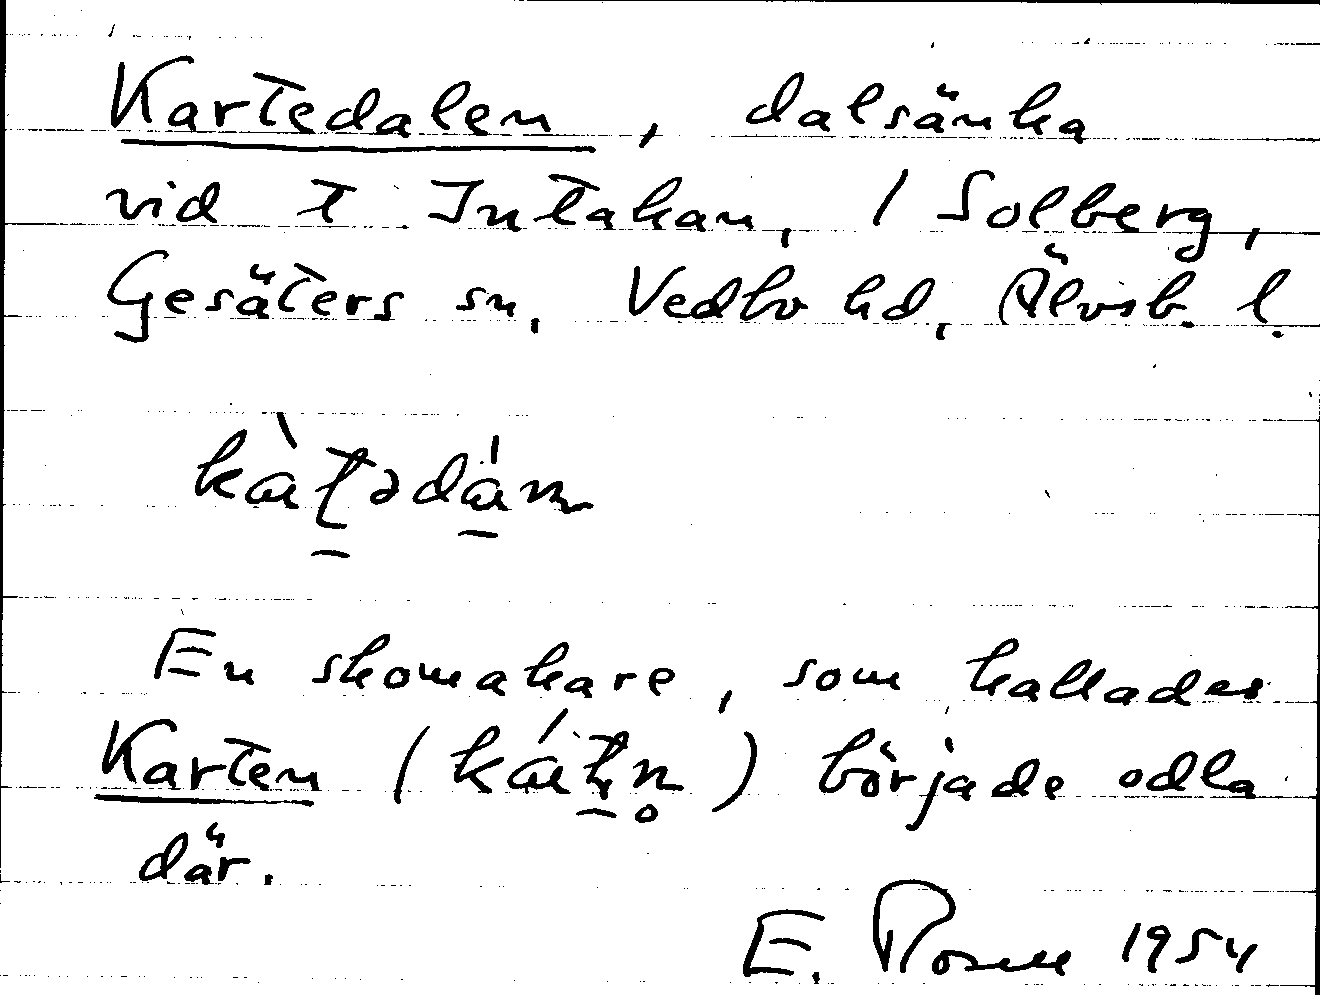 Kartedalen, dalsänka
vid t Intakan, 1 Solberg,
Gesäters sn, Vedbo hd, Älvsb. l.
En skomakare, som kallades
Karten ( ) började odla
där.
E. Rosell 1954